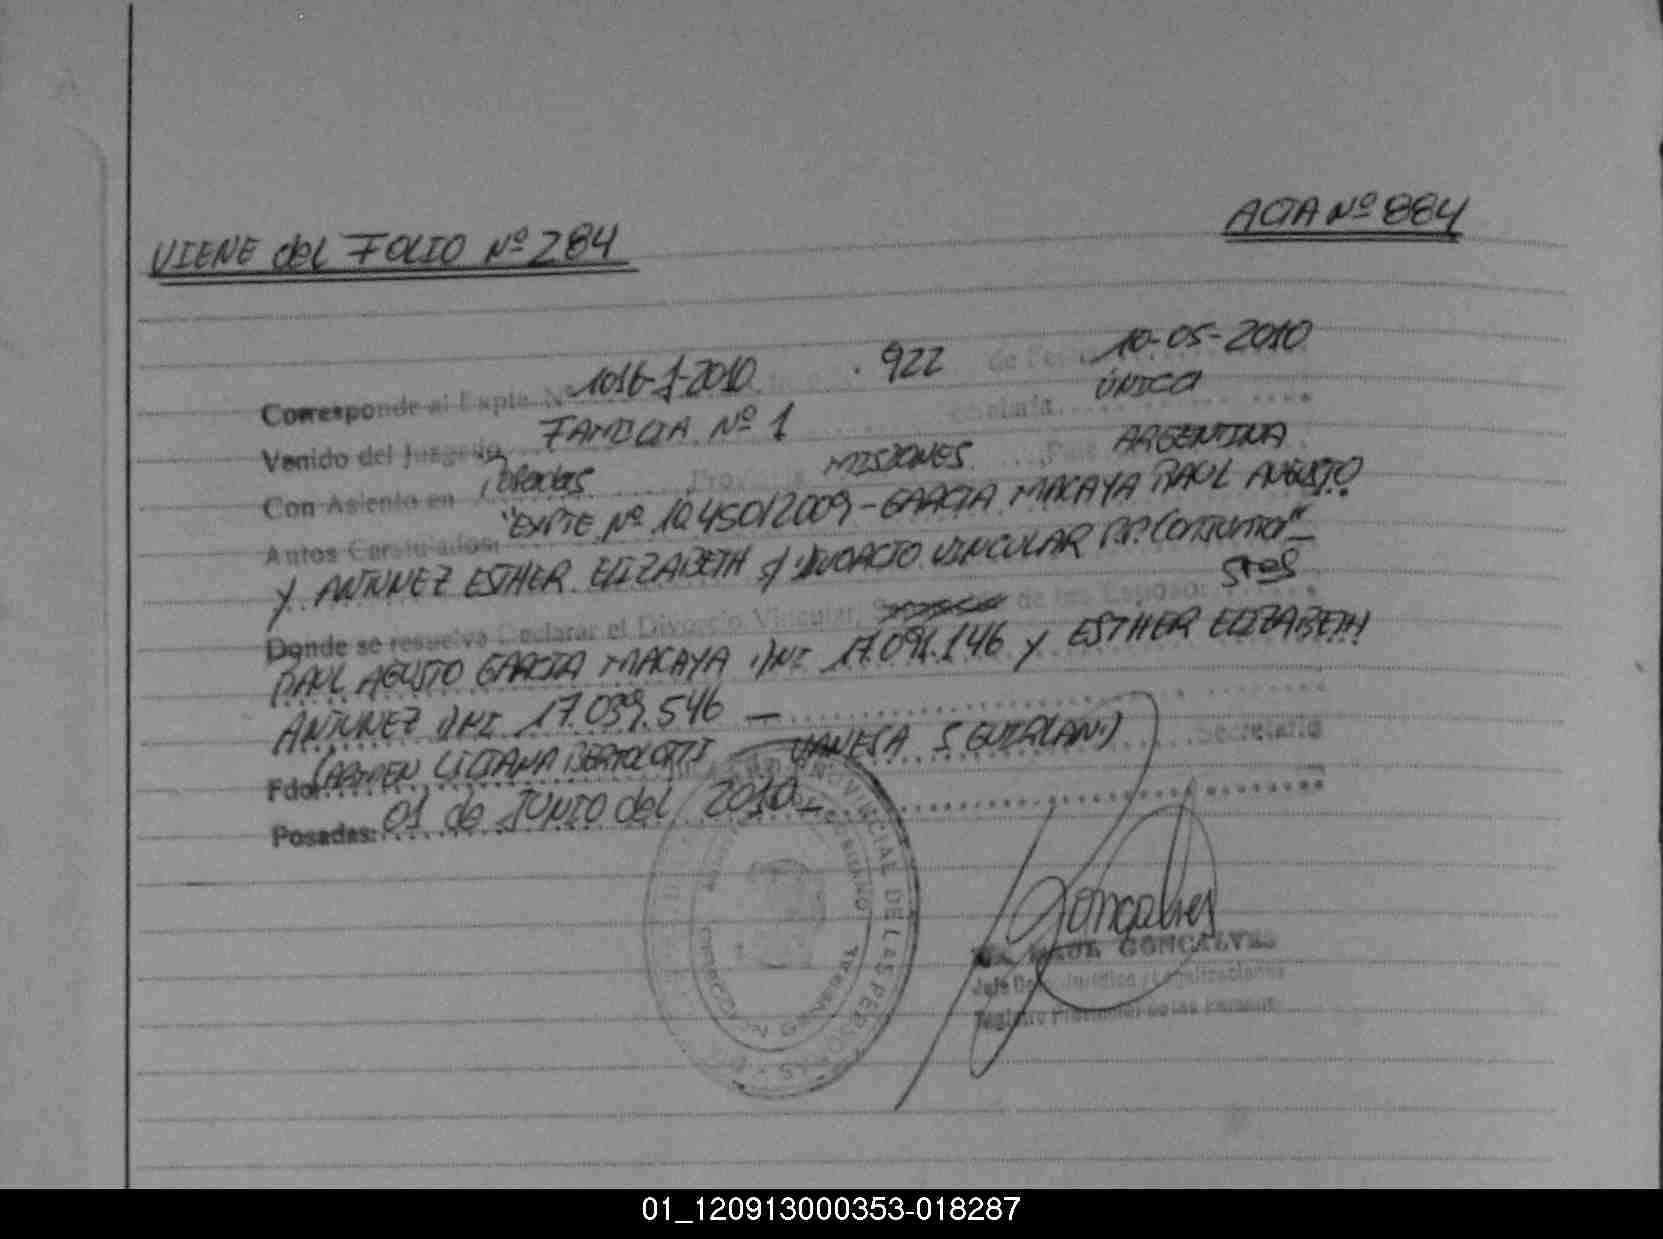 VIENE del FOLIO Nº 284
ACTA Nº 884
Corresponde al Expte. Nº 1016-J-2010 922 de Fecha 10-05-2010
Venido del Juzgado FAMILIA Nº 1 Secretaría ÚNICA
Con Asiento en Posadas Provincia MISIONES País ARGENTINA
Autos Caratulados: "EXPTE Nº 10.450/2009 - GARCIA MACAYA RAUL AUGUSTO
Y ANTUNEZ ESTHER ELIZABETH s/ DIVORCIO VINCULAR P.P. CONJUNTO"
Donde se resuelve Declarar el Divorcio Vincular, de los Esposos: Sres
RAUL AGUSTO GARCIA MACAYA DNI 17.091.146 y ESTHER ELIZABETH
ANTUNEZ DNI 17.039.546 —
Fdo: CARMEN LILIANA BERTOLOTTI VANESA S GUIRLAND Secretario
Posadas: 01 de JUNIO del 2010 -
PROVINCIAL DE LAS PERSONAS
DIRECCION GENERAL
Goncalves
RAUL GONCALVES
Jefe Jurídica / Legalizaciones
Registro Provincial de las Personas
01_120913000353-018287